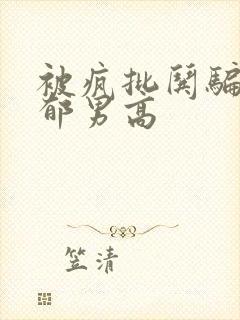 被疯批哄骗
郁男高
笠清